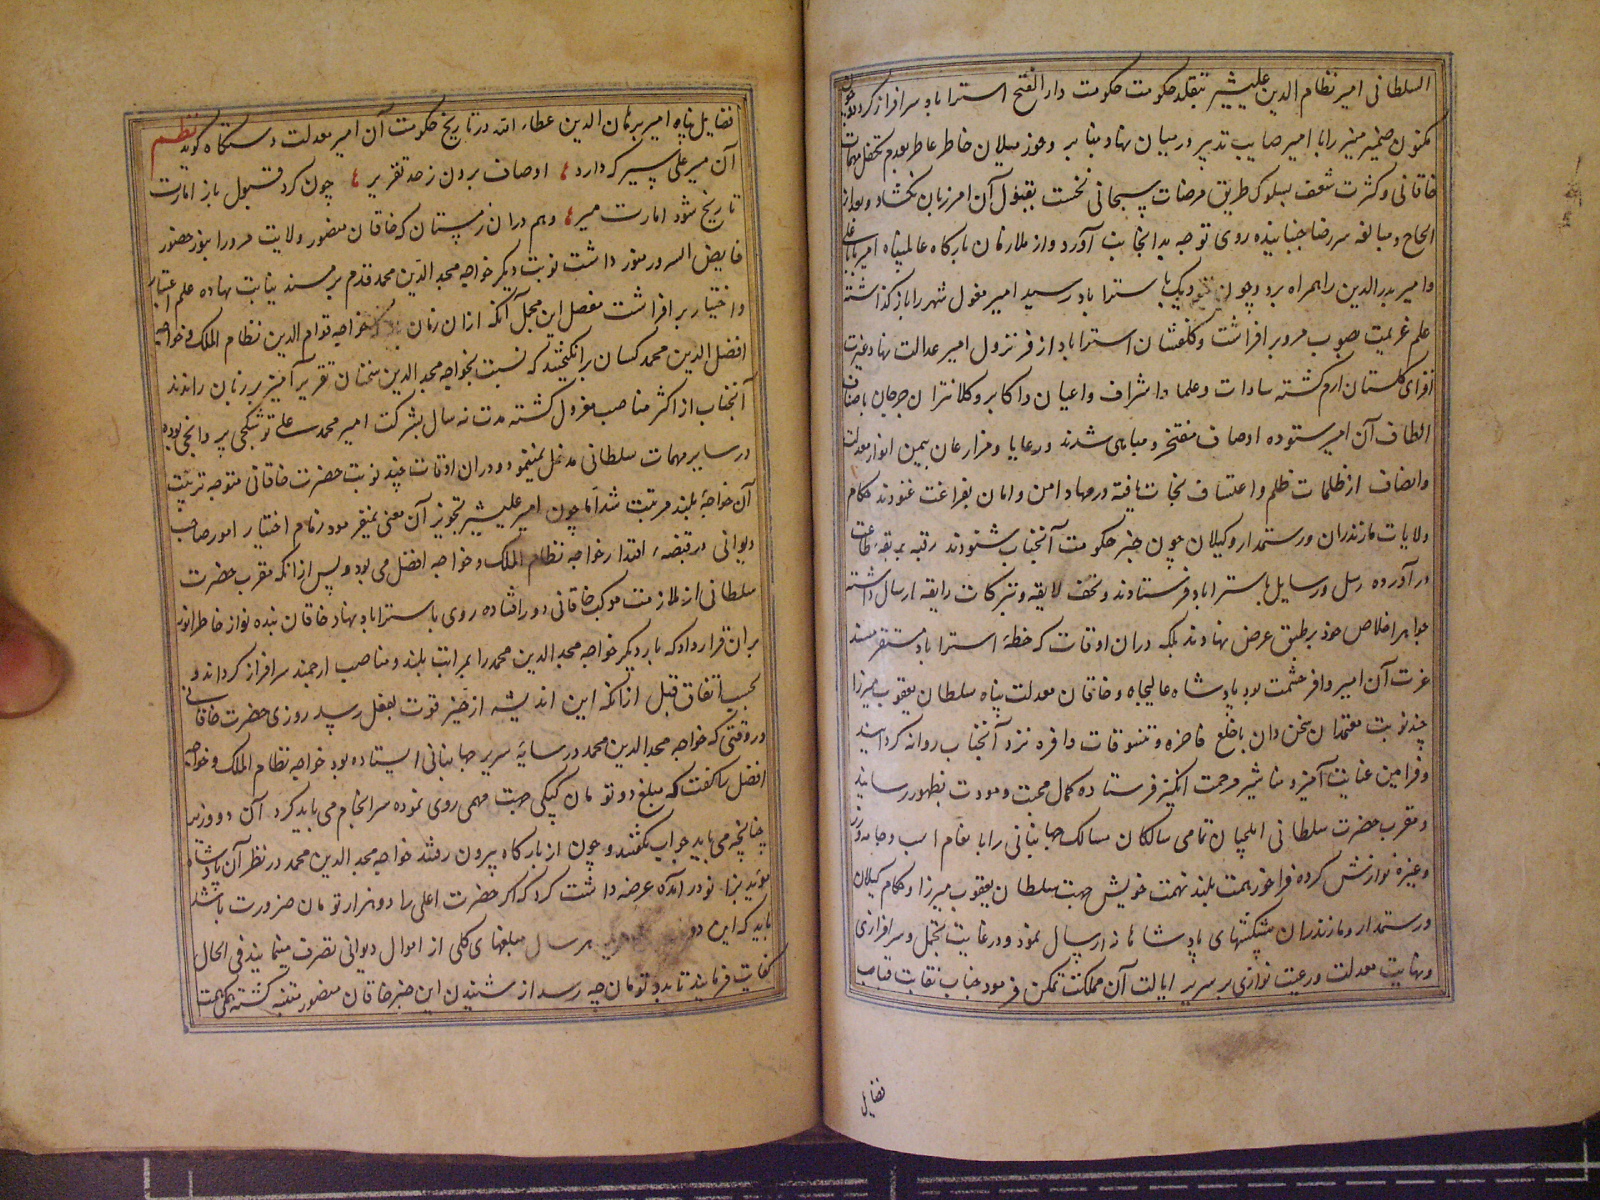 السلطانی امیر نظام الدین علیشیر بتقلد حکومت حکومت دار الفتح استراباد سرافراز کردد چون
مکنون ضمیر منیر را با امیر صایب تدبیر در میان نهاد بنا بر وفور میلان خاطر عاطر بعدم تکفل مهمات
خاقانی و کثرت شعف بسلوک طریق مرضات سبحانی نخست بقبول آن امر زبان نکشاد و بعد از
الحاح و مبالغه سر رضا جنبانیده روی توجه بدانجانب آورد و از ملازمان بارکاه عالمپناه امیر بابا علی
وامیر بدر الدین را همراه برد و چون نزدیک باستراباد رسید امیر مغول شهر را باز کذاشته
علم عزیمت بصوب مرو برافراشت و کلفشان استراباد از فر نزول امیر عدالت نهاد غیرت
افزای کلستان ارم کشته سادات و علما و اشراف و اعیان و اکابر و کلانتران جرجان باصناف
الطاف آن امیر ستوده اوصاف مفتخر و مباهی شدند و رعایا و مزارعان بیمن انوار معدلت
وانصاف از ظلمات ظلم و اعتساف نجات یافته در مهاد امن و امان بفراغت غنودند حکام
ولایات مازندران و رستمدار و کیلان چون خبر حکومت آنجناب شنودند رقبه بربقه طاعت
در آورده رسل و رسایل باستراباد فرستادند و تحف لایقه و تبرکات رایقه ارسال داشته
جواهر اخلاص خود بر طبق عرض نهادند بلکه دران اوقات که خطه استراباد مستقر مسند
عزت آن امیر وافر حشمت بود پادشاه عالیجاه و خاقان معدلت پناه سلطان یعقوب میرزا
چند نوبت معتمدان سخن دان با خلع فاخره و تنسوقات وافره نزد آنجناب روانه کردانید
وفرامین عنایت آمیز و مناشیر مرحمت انکیز فرستاده کمال محبت و مودت بظهور رسانید
ومقرب حضرت سلطانی ایلچیان تمامی سالکان مسالک جهانبانی را بانعام اسب و جامه و زر
وغیره نوازش کرده فراخور همت بلند نهمت خویش جهت سلطان یعقوب میرزا و حکام کیلان
ورستمدار و مازندران پیشکشهای پادشاهانه ارسال نمود و در غایت تجمل و سرافرازی
ونهایت معدلت و رعیت نوازی بر سریر ایالت آن مملکت تمکن فرمود جناب نقابت قباب
فضایل
فضایل پناه امیر برهان الدین عطاء الله در تاریخ حکومت آن امیر معدلت دستکاه کوید نظم
آن میر علی شیر که دارد اوصاف برون ز حد تقریر چون کرد قبول باز امارت
تاریخ شود امارت میر وهم دران زمستان که خاقان منصور ولایت مرو را بنور حضور
فایض السرور منور داشت نوبت دیکر خواجه مجد الدین محمد قدم بر مسند نیابت نهاده علم اعتبار
واختیار برافراشت مفصل این مجمل آنکه ازان زمان خواجه قوام الدین نظام الملک و خواجه
افضل الدین محمد کسان برانکیختند که نسبت بخواجه مجد الدین سخنان تقریر آمیز بر زبان راندند
آنجناب از اکثر مناصب معزول کشته مدت نه سال بشرکت امیر محمد علی توشکجی پروانچی بوده
در سایر مهمات سلطانی مدخل نمینمود و دران اوقات چند نوبت حضرت خاقانی متوجه تربیت
آن خواجه بلند مرتبت شد اما چون امیر علیشیر تجویز آن معنی نمیفرمود زمام اختیار امور صاحب
دیوانی در قبضه اقتدار خواجه نظام الملک و خواجه افضل می بود و پس ازانکه مقرب حضرت
سلطانی از ملازمت موکب خاقانی دور افتاده روی باستراباد نهاد خاقان بنده نواز خاطر انور
بران قرار داد که بار دیکر خواجه مجد الدین محمد را بمراتب بلند و مناصب ارجمند سرافراز کرداند و
بحسب اتفاق قبل ازانکه این اندیشه از حیز قوت بفعل رسد روزی حضرت خاقانی
در وقتی که خواجه مجد الدین محمد در سایه سریر جهانبانی ایستاده بود خواجه نظام الملک و خواجه
افضل را کفت که مبلغ دو تومان کپکی جهت مهمی روی نموده سرانجام می باید کرد آن دو وزیر
چنانچه می باید جواب نکفتند و چون از بارکاه بیرون رفتند خواجه مجد الدین محمد در نظر آن پادشاه
مؤید بزانو در آمده عرضه داشت کرد که اکر حضرت اعلی را دو هزار تومان ضرورت باشد
باید که این دو هر سال مبلغهای کلی از اموال دیوانی تصرف مینمایند فی الحال
کفایت فرمایند تا بدو تومان چه رسد از شنیدن این خبر خاقان منصور متنبه کشته همکی همت